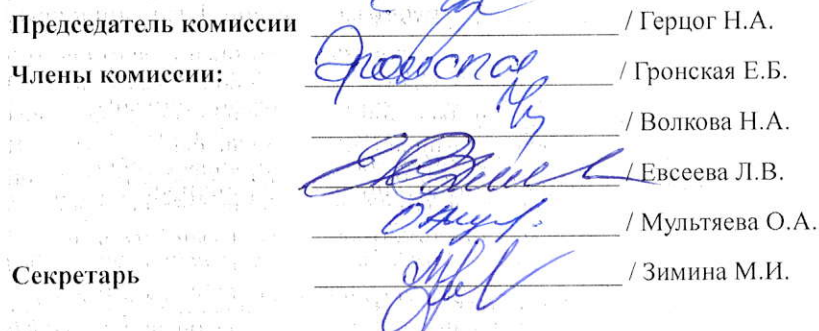 Председатель комиссии / Герцог Н.А.
Члены комиссии: / Гронская Е.Б.
/ Волкова Н.А.
/ Евсеева Л.В.
/ Мультяева О.А.
Секретарь / Зимина М.И.